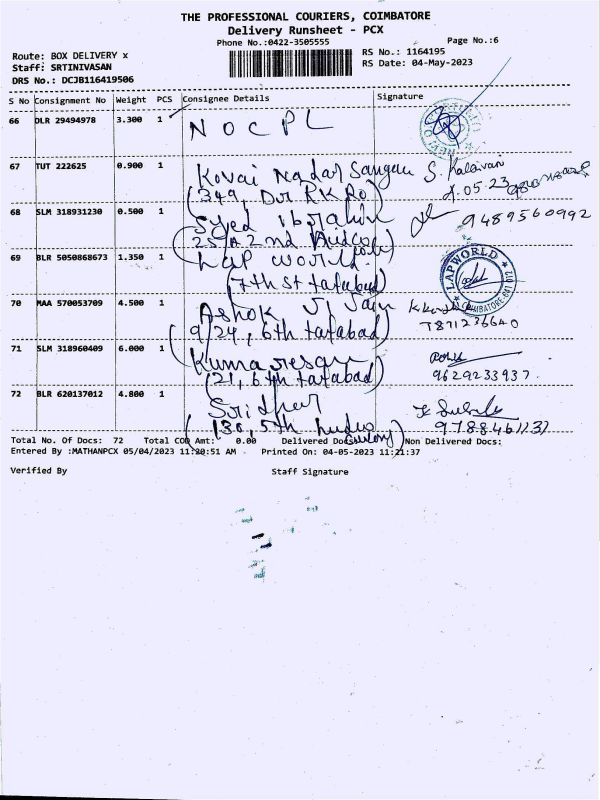 THE PROFESSIONAL COURIERS, COIMBATORE
Delivery Runsheet - PCX
Phone No.:0422-3505555
Page No.:6
Route: BOX DELIVERY x
RS No.: 1164195
Staff: SRTINIVASAN
RS Date: 04-May-2023
DRS No.: DCJB116419506
S No Consignment No Weight PCS Consignee Details Signature
66 DLR 29494978 3.300 1 NOCPL
67 TUT 222625 0.900 1 Kovai Nadar Sangam S. Kalaivani
(349, Dr. R K Ro) 4.05.23
68 SLM 318931230 0.500 1 Syed Ibrahim 9489560992
(25/A 2nd
69 BLR 5050868673 1.350 1 Lap world. LAPWORLD COIMBATORE
(7th St tatabad)
70 MAA 570053709 4.500 1 Ashok V Jain
(9/24, 6th tatabad) 7871236640
71 SLM 318960409 6.000 1 Kumaresan
(21, 6th tatabad) 9629233937.
72 BLR 620137012 4.800 1 Sridhar
(130, 5th
Total No. Of Docs: 72 Total COD Amt: 0.00 Delivered Docs: Non Delivered Docs:
Entered By :MATHANPCX 05/04/2023 11:20:51 AM Printed On: 04-05-2023 11:21:37
Verified By Staff Signature